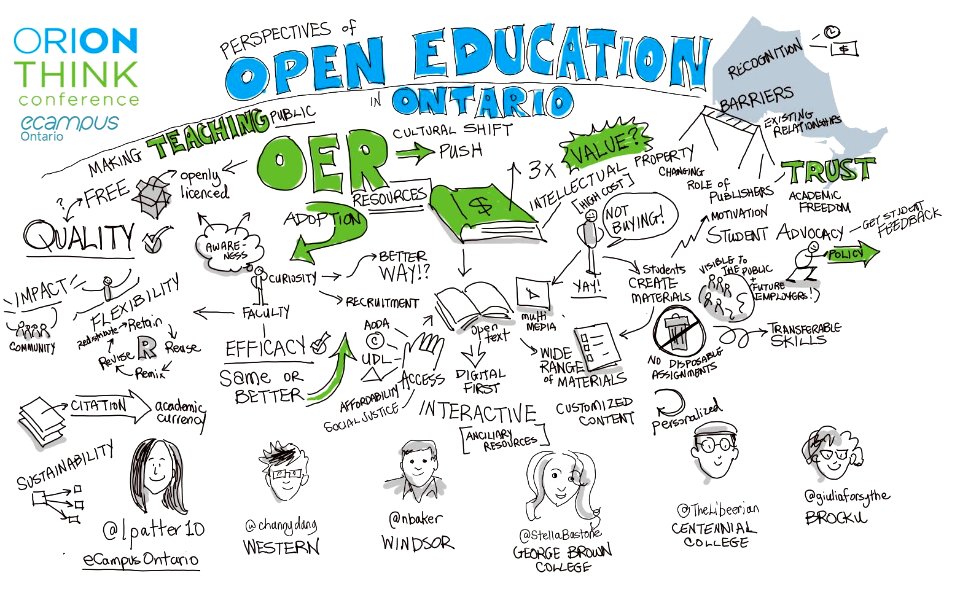 ORION
THINK
conference
ecampus
Ontario
PERSPECTIVES of
OPEN EDUCATION
IN ONTARIO
RECOGNITION
$
BARRIERS
EXISTING
RELATIONSHIPS
MAKING TEACHING PUBLIC
OER
RESOURCES
CULTURAL SHIFT
PUSH
3X
VALUE??
INTELLECTUAL
PROPERTY
[HIGH COST]
CHANGING
ROLE of
PUBLISHERS
TRUST
ACADEMIC
FREEDOM
?
FREE
openly
licenced
QUALITY
ADOPTION
$
NOT
BUYING!
YAY!
MOTIVATION
STUDENT ADVOCACY
GET STUDENT
FEEDBACK
POLICY
AWARE-
NESS
CURIOSITY
BETTER
WAY!?
RECRUITMENT
FACULTY
IMPACT
COMMUNITY
FLEXIBILITY
Retain
Reuse
Remix
Revise
Redistribute
R
EFFICACY
SAME OR
BETTER
AODA
©
UDL
ACCESS
AFFORDABILITY
SOCIAL JUSTICE
open
text
DIGITAL
FIRST
multi
MEDIA
WIDE
RANGE
of MATERIALS
students
CREATE
MATERIALS
VISIBLE TO
THE PUBLIC
+
FUTURE
EMPLOYERS!
NO DISPOSABLE
ASSIGNMENTS
TRANSFERABLE
SKILLS
INTERACTIVE
[ANCILIARY
RESOURCES]
CUSTOMIZED
CONTENT
personalized
CITATION
academic
currency
SUSTAINABILITY
@lpatter10
eCampusOntario
@changydang
WESTERN
@nbaker
WINDSOR
@StellaBastone
GEORGE BROWN
COLLEGE
@TheLibeerian
CENTENNIAL
COLLEGE
@giuliaforsythe
BROCKU